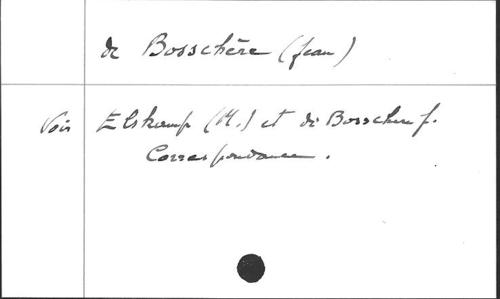 de Bosschère (Jean)
Voir Elskamp (M.) et de Bosschere J.
Correspondance.